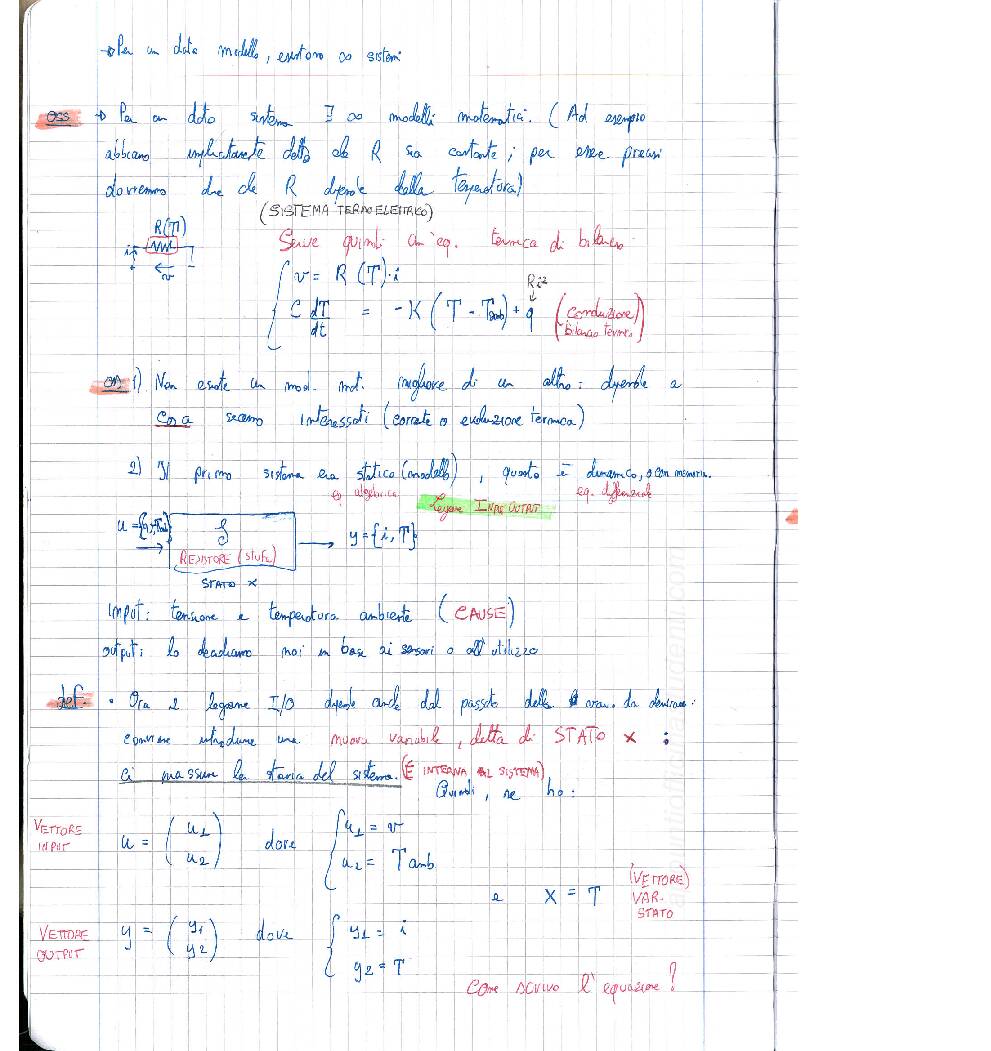 → Per un dato modello, esistono ∞ sistemi
oss → Per un dato sistema ∃ ∞ modelli matematici. (Ad esempio
abbiamo implicitamente detto che R sia costante; per essere precisi
dovremmo dire che R dipende dalla temperatura)
(SISTEMA TERMOELETTRICO)
R(T)
i
v
Serve quindi un'eq. termica di bilancio.
v = R(T)·i
Ri²
C dT/dt = -K(T - Tamb) + q (conduzione bilancio termico)
oss 1) Non esiste un mod. mat. migliore di un altro: dipende a
cosa saremo interessati (corrente o evoluzione termica)
2) Il primo sistema era statico (modello), questo è dinamico, o con memoria.
eq algebrica
eq. differenziale
Legame INPUT OUTPUT
u = {v, Tamb}
S
RESISTORE (stufa)
STATO x
y = {i, T}
Input: tensione e temperatura ambiente (CAUSE)
output: lo decidiamo noi in base ai sensori o all'utilizzo
def. • Ora il legame I/O dipende anche dal passato della
conviene introdurre una nuova variabile, detta di STATO x :
ci riassume la storia del sistema. (È INTERNA AL SISTEMA)
Quindi, se ho:
VETTORE INPUT
u = (u1 u2) dove { u1 = v
u2 = Tamb
e x = T (VETTORE) VAR. STATO
VETTORE OUTPUT
y = (y1 y2) dove { y1 = i
y2 = T
Come scrivo l'equazione?